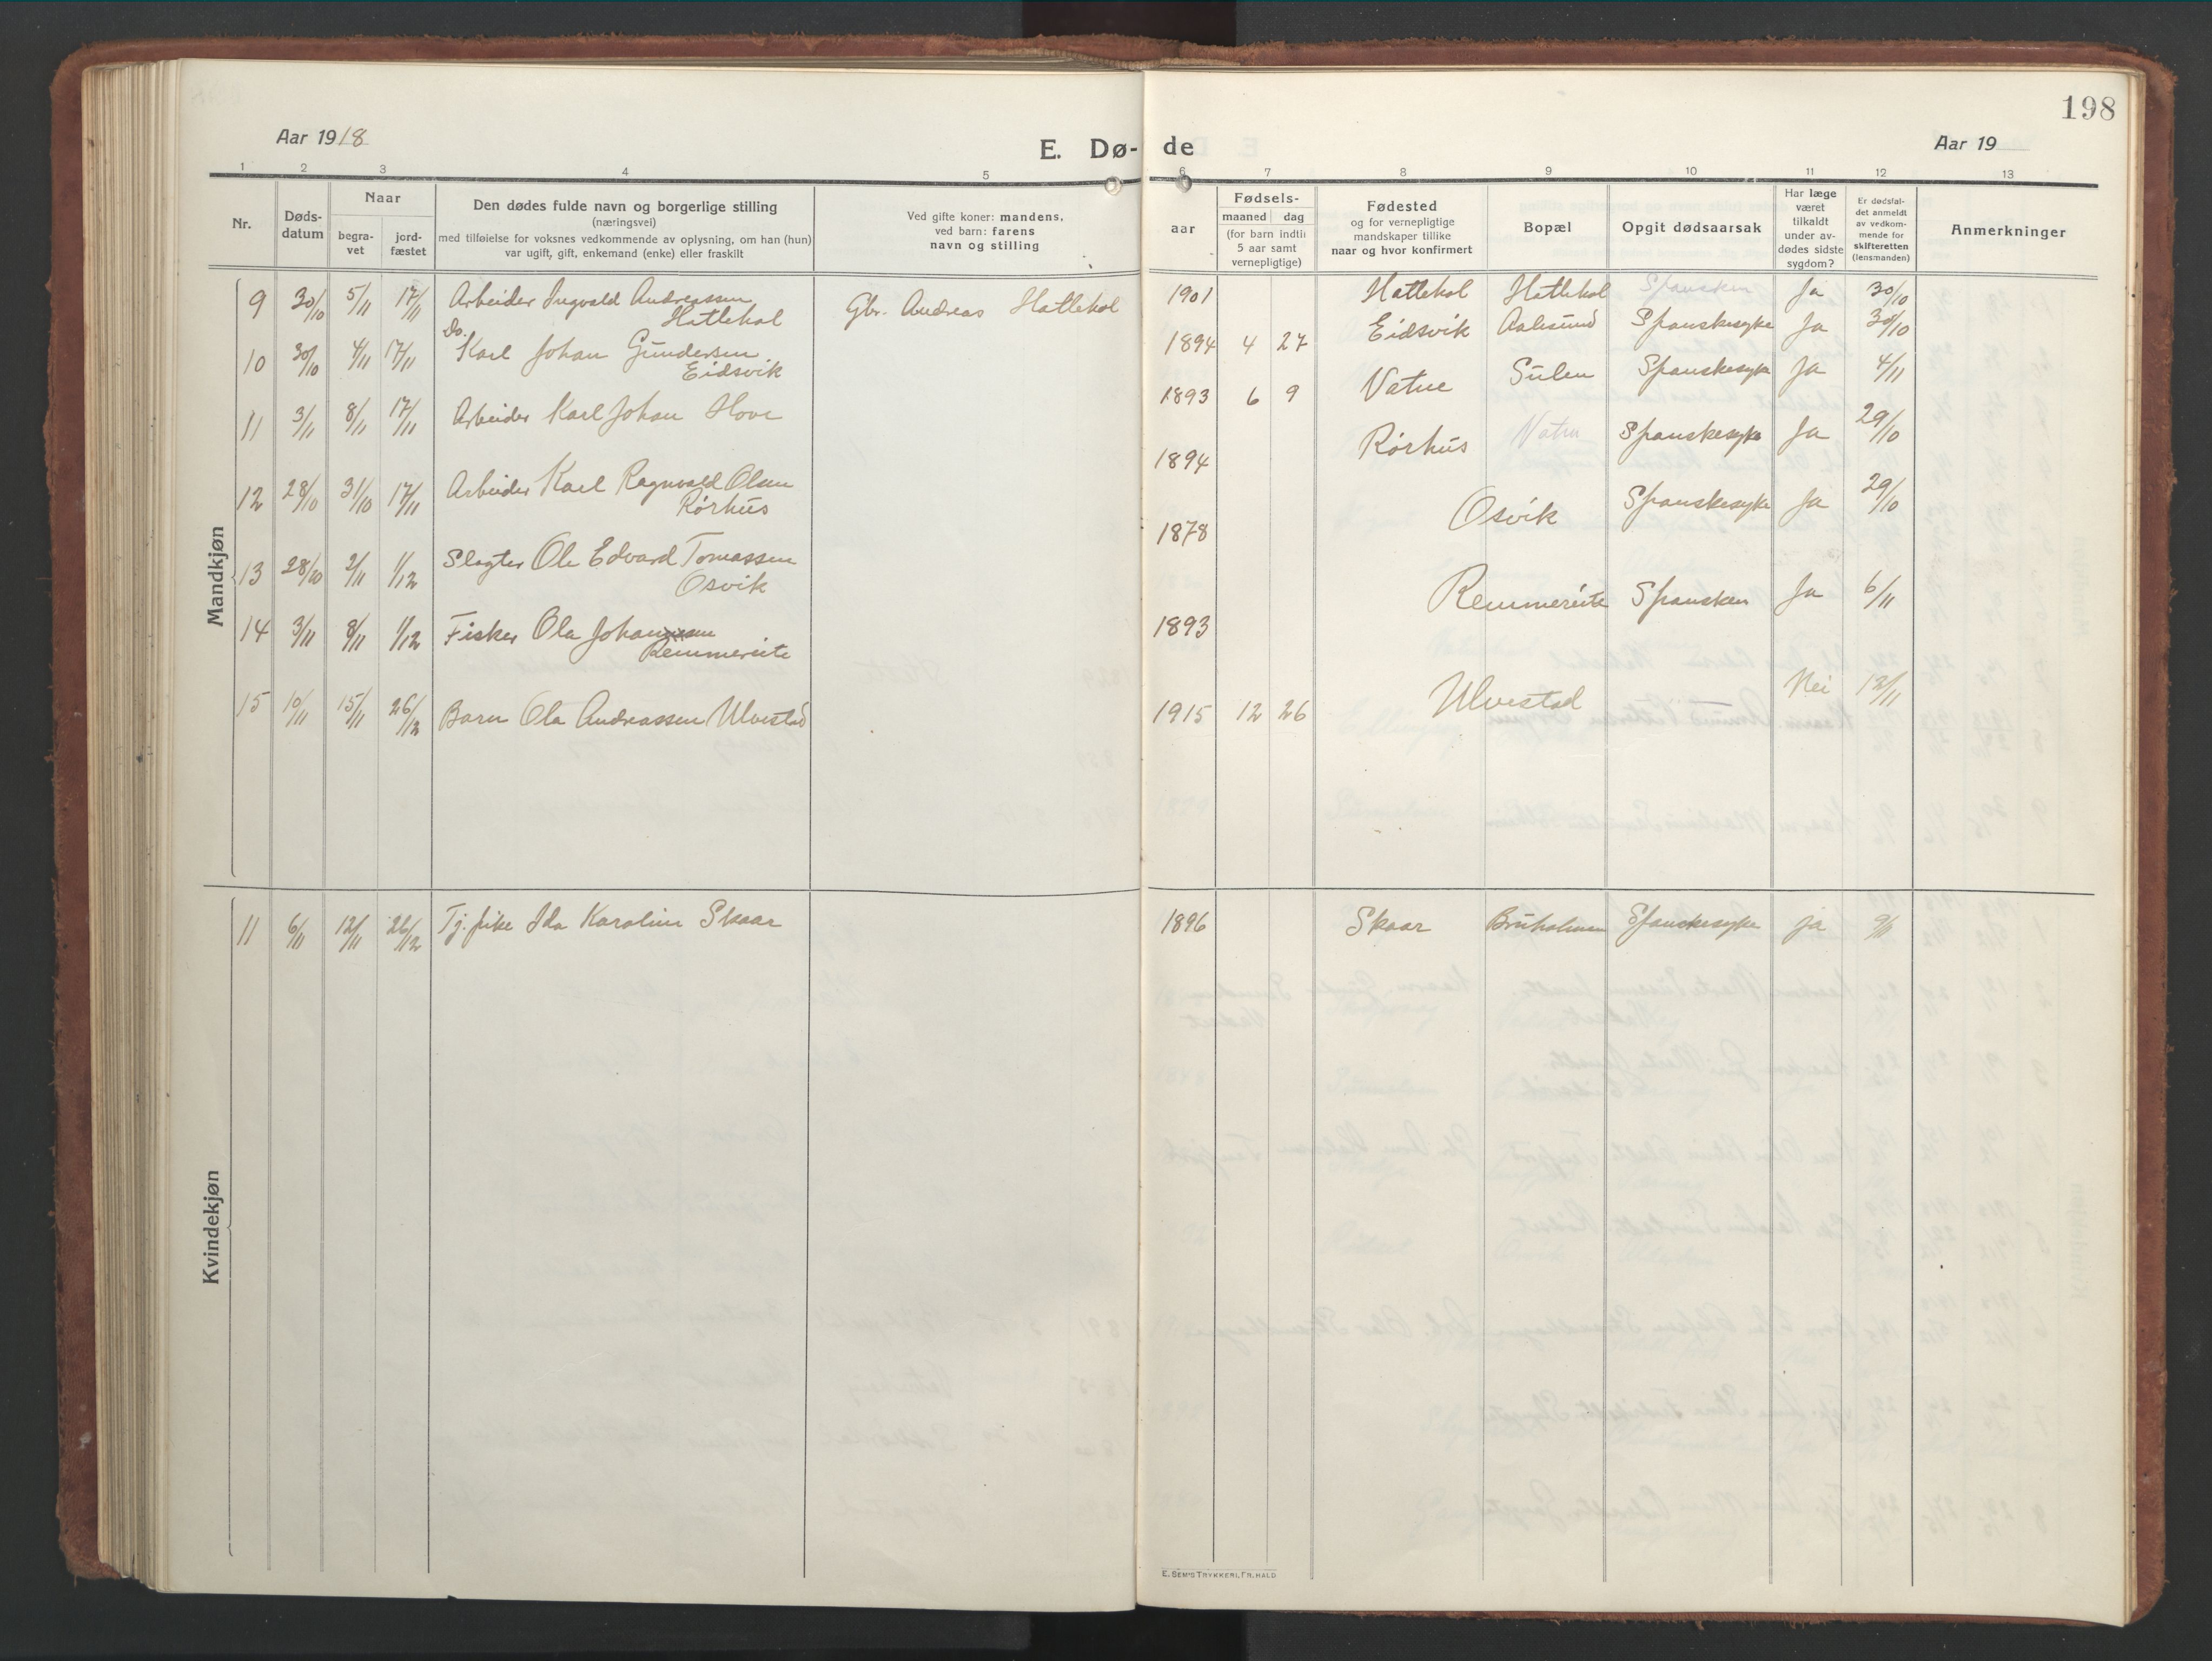 198
Aar 1918
E. Dø-
de
Aar 19
1 2 3 4 5 6 7 8 9 10 11 12 13
Nr.
Døds-
datum
Naar
begra-
vet
jord-
fæstet
Den dødes fulde navn og borgerlige stilling
(næringsvei)
med tilføielse for voksnes vedkommende av oplysning, om han (hun)
var ugift, gift, enkemand (enke) eller fraskilt
Ved gifte koner: mandens,
ved barn: farens
navn og stilling
aar
Fødsels-
maaned dag
(for barn indtil
5 aar samt
vernepligtige)
Fødested
og for vernepligtige
mandskaper tillike
naar og hvor konfirmert
Bopæl
Opgit dødsaarsak
Har læge
været
tilkaldt
under av-
dødes sidste
sygdom?
Er dødsfal-
det anmeldt
av vedkom-
mende for
skifteretten
(lensmanden)
Anmerkninger
Mandkjøn
9 30/10 5/11 17/11 Arbeider Ingvald Andreassen
Hatlehol
Gbr. Andreas Hatlehol 1901 Hatlehol Hatlehol Spansken Ja 30/10
Do.
10 30/10 4/11 17/11 Karl Johan Gundersen
Eidsvik
1894 4 27 Eidsvik Aalesund Spanskesyke Ja 30/10
11 3/11 8/11 17/11 Arbeider Karl Johan Hove 1893 6 9 Vatne Sulen Spanskesyke Ja 4/11
12 28/10 31/10 17/11 Arbeider Karl Ragnvald Olsen
Rørhus
1894 Rørhus Vatne Spanskesyke Ja 29/10
13 28/10 2/11 1/12 Slagter Ole Edvard Tomassen
Osvik
1878 Osvik Spanskesyke Ja 29/10
14 3/11 8/11 1/12 Fisker Ola Johannesen
Remmereite
1893 Remmereite Spansken Ja 6/11
15 10/11 15/11 26/12 Barn Ola Andreassen Ulvestad 1915 12 26 Ulvestad Nei 12/11
Kvindekjøn
11 6/11 12/11 26/12 Tj. pike Ida Karoline Skaar 1896 Skaar Bruholmen Spanskesyke ja 9/11
E. SEM'S TRYKKERI, FR.HALD